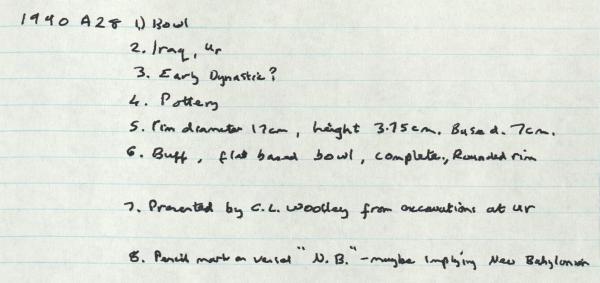 1990 A28 1) Bowl
2. Iraq, Ur
3. Early Dynastic?
4. Pottery
5. rim diameter 17cm, height 3.75cm. Base d. 7cm.
6. Buff, flat based bowl, complete., Rounded rim
7. Presented by C.L. Woolley from excavations at Ur
8. Pencil mark on vessel "N.B." - maybe implying New Babylonian